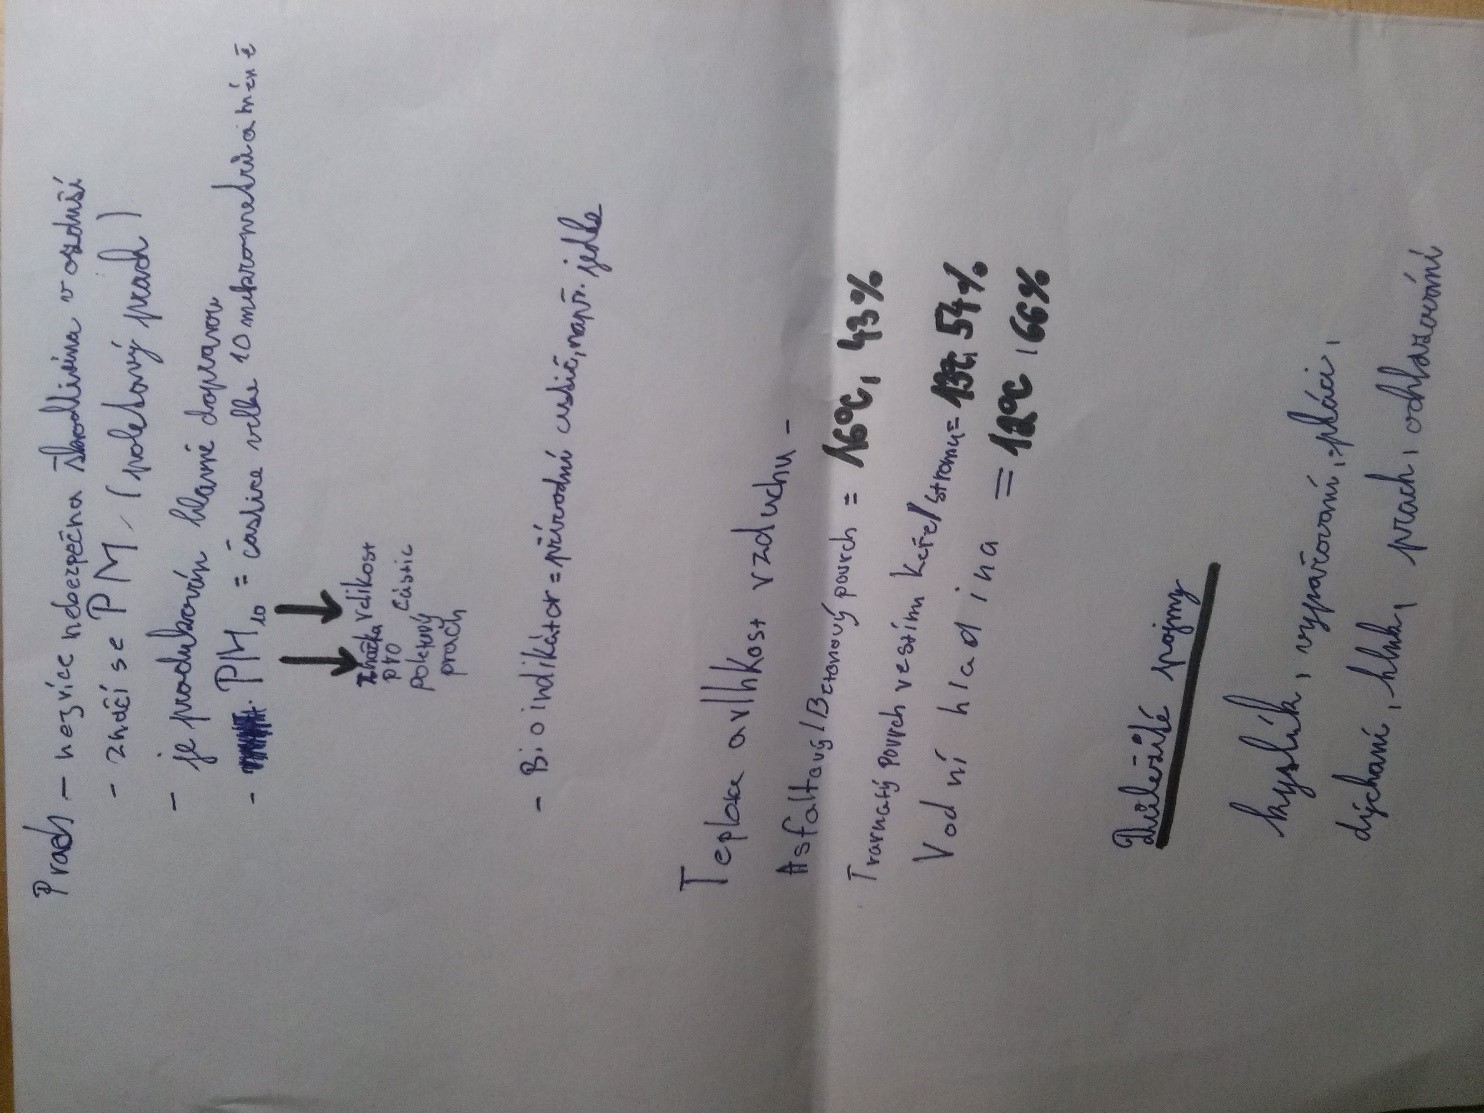 Prach - nejvíce nebezpečná škodlivina v ovzduší
- značí se PM (poletový prach)
- je produkován hlavně dopravou
- PM10 = částice velké 10 mikrometrů a méně
značka pro poletový prach
velikost částic
- Bioindikátor = přírodní cistič, např. jedle
Teplota a vlhkost vzduchu -
Asfaltový/Betonový povrch = 16°C, 43%
Travnatý povrch ve stínu keře/stromu = 13°C, 54%
Vodní hladina = 12°C, 66%
Důležité pojmy
kyslík, vypařování, ptáci,
dýchání, hluk, prach, ochlazování